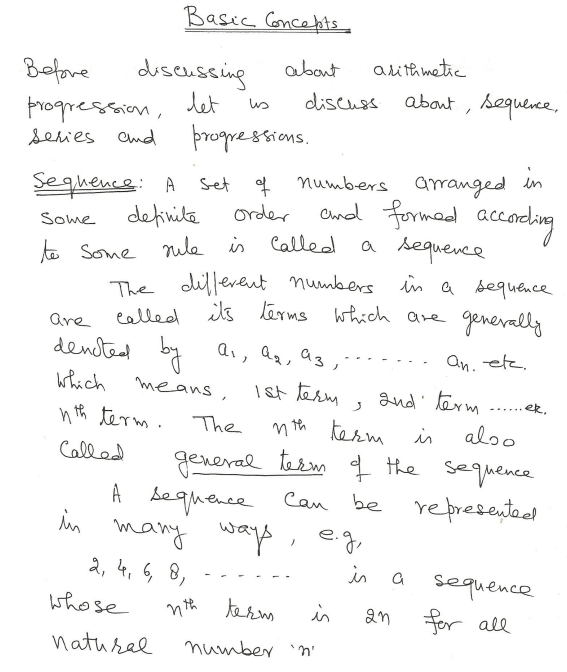 Basic Concepts
Before discussing about arithmetic
progression, let us discuss about, sequence,
series and progressions.
Sequence: A set of numbers arranged in
some definite order and formed according
to some rule is called a sequence
The different numbers in a sequence
are called its terms which are generally
denoted by a₁, a₂, a₃, ........ an. etc.
Which means, 1st term, 2nd term ......etc.
nth term. The nth term is also
called general term of the sequence
A sequence can be represented
in many ways, e.g,
2, 4, 6, 8, ------- is a sequence
whose nth term is 2n for all
natural number 'n'